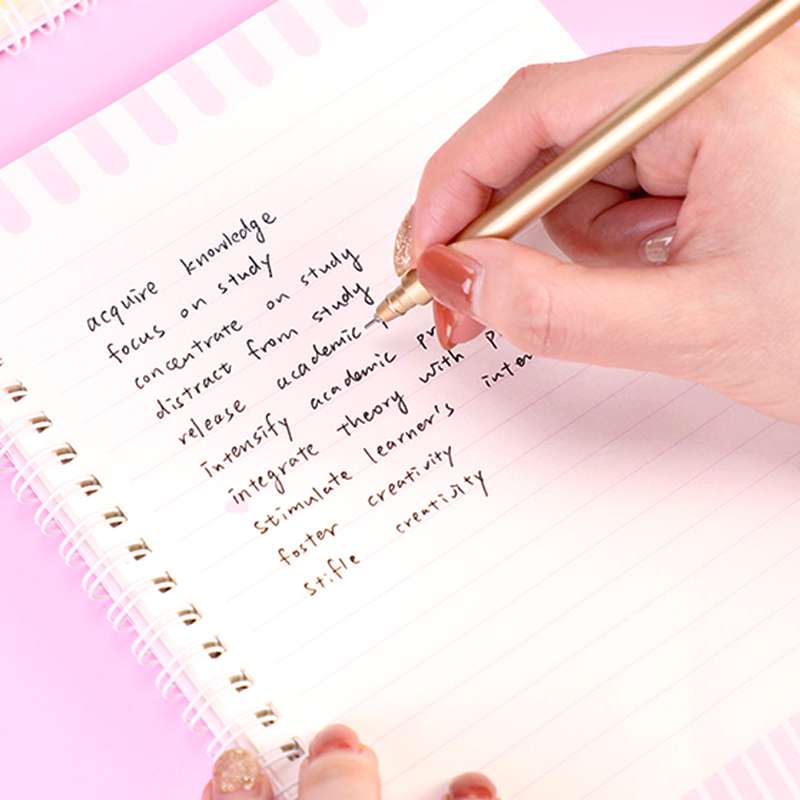 acquire knowledge
focus on study
concentrate on study
distract from study
release academic
intensify academic pr
integrate theory with p
stimulate learner's inter
foster creativity
stifle creativity